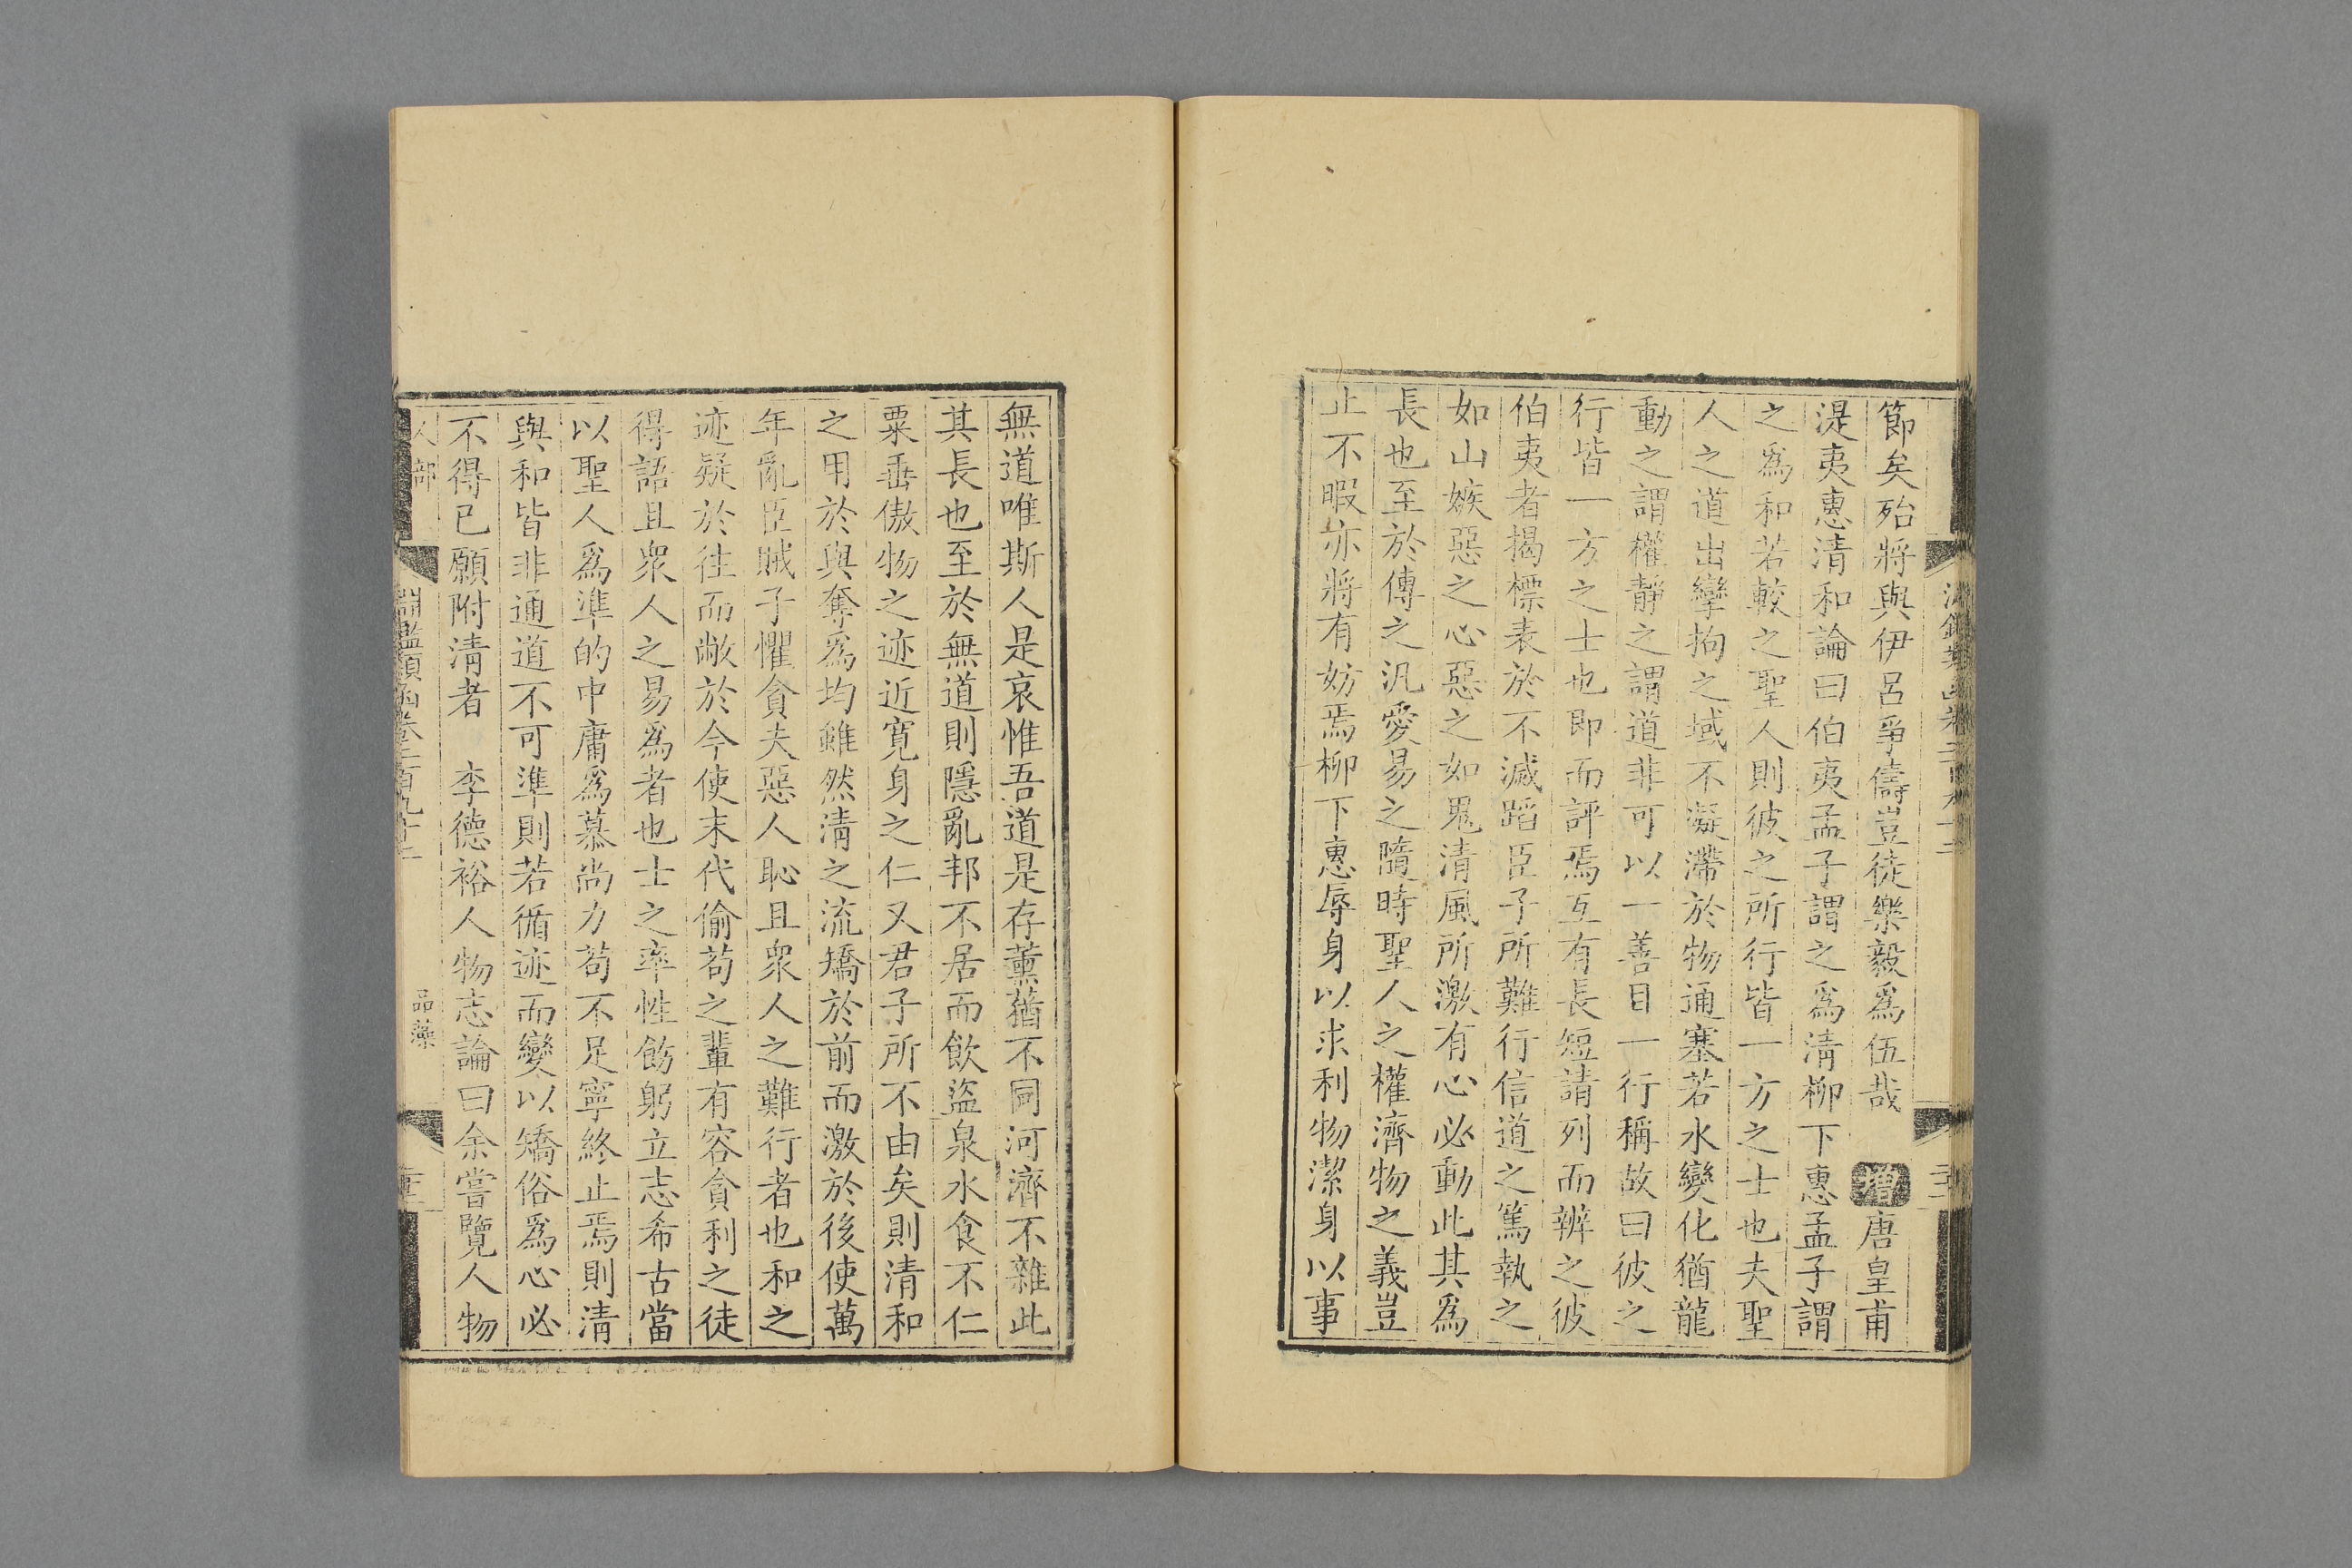 節矣殆將與伊呂爭儔豈徒樂毅爲伍哉　增唐皇甫
湜夷惠清和論曰伯夷孟子謂之爲清柳下惠孟子謂
之爲和若較之聖人則彼之所行皆一方之士也夫聖
人之道出攣拘之域不凝滯於物通塞若水變化猶龍
動之謂權靜之謂道非可以一善目一行稱故曰彼之
行皆一方之士也即而評焉互有長短請列而辨之彼
伯夷者揭標表於不滅蹈臣子所難行信道之篤執之
如山嫉惡之心惡之如鬼清風所激有心必動此其爲
長也至於傳之汎愛易之隨時聖人之權濟物之義豈
止不暇亦將有妨焉柳下惠辱身以求利物潔身以事
無道唯斯人是哀惟吾道是存薰蕕不同河濟不雜此
其長也至於無道則隱亂邦不居而飲盜泉水食不仁
粟垂傲物之迹近寛身之仁又君子所不由矣則清和
之用於與奪爲均雖然清之流矯於前而激於後使萬
年亂臣賊子懼貪夫惡人恥且衆人之難行者也和之
迹疑於往而敝於今使末代偷苟之輩有容貪利之徒
得語且衆人之易爲者也士之率性飭躬立志希古當
以聖人爲準的中庸爲慕尚力苟不足寧終止焉則清
與和皆非通道不可準則若循迹而變以矯俗爲心必
不得已願附清者　李德裕人物志論曰余嘗覽人物
人部
淵鑑類函卷二百九十二
品藻